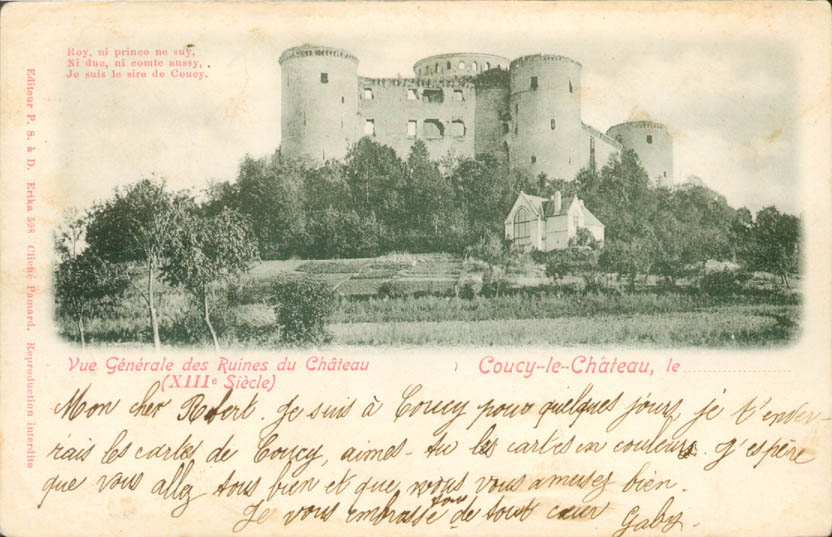 Roy, ni prince ne suy,
Ni duc, ni comte aussy,
Je suis le sire de Coucy.
Editeur P. S. à D. Erika 598 Cliché Pamard. Reproduction interdite
Vue Générale des Ruines du Château
(XIIIe Siècle)
Coucy-le-Château, le
Mon cher Robert. Je suis à Coucy pour quelques jours, je t'enver-
rais les cartes de Coucy, aimes-tu les cartes en couleurs. J'espère
que vous allez tous bien et que vous vous amusez bien.
Je vous embrasse tous de tout cœur Gaby.